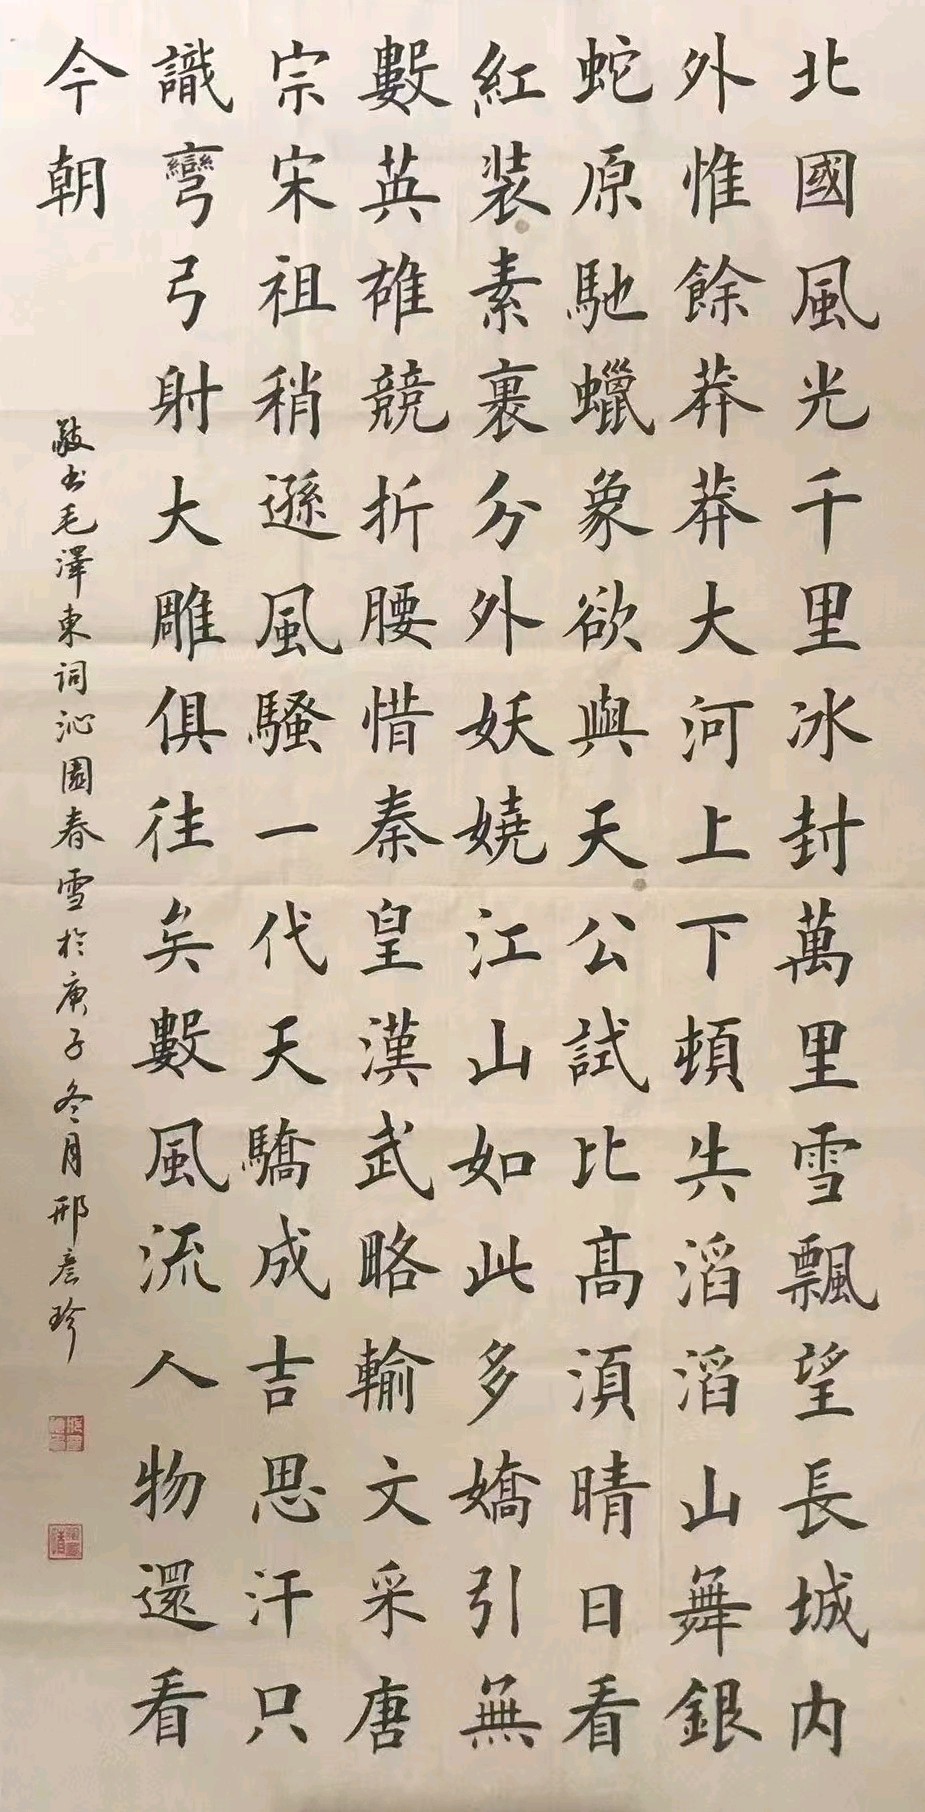 北國風光千里冰封萬里雪飄望長城内
外惟餘莽莽大河上下頓失滔滔山舞銀
蛇原馳蠟象欲與天公試比髙湏晴日看
紅装素裹分外妖嬈江山如此多嬌引無
數英雄競折腰惜秦皇漢武略輸文采唐
宗宋祖稍遜風騷一代天驕成吉思汗只
識彎弓射大雕俱往矣數風流人物還看
今朝
敬书毛澤東词沁園春雪於庚子冬月邢彦珍